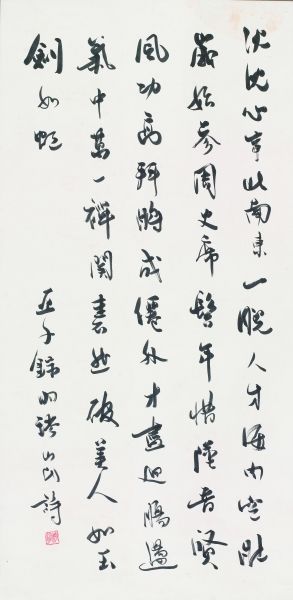 沈沈心事北南東一睨人才海內空壯
歲始參周史席髫年惜墮晉賢
風功高拜將成僊外才盡迴腸盪
氣中萬一禪關砉然破美人如玉
劍如虹
亞子錄羽琌山民詩